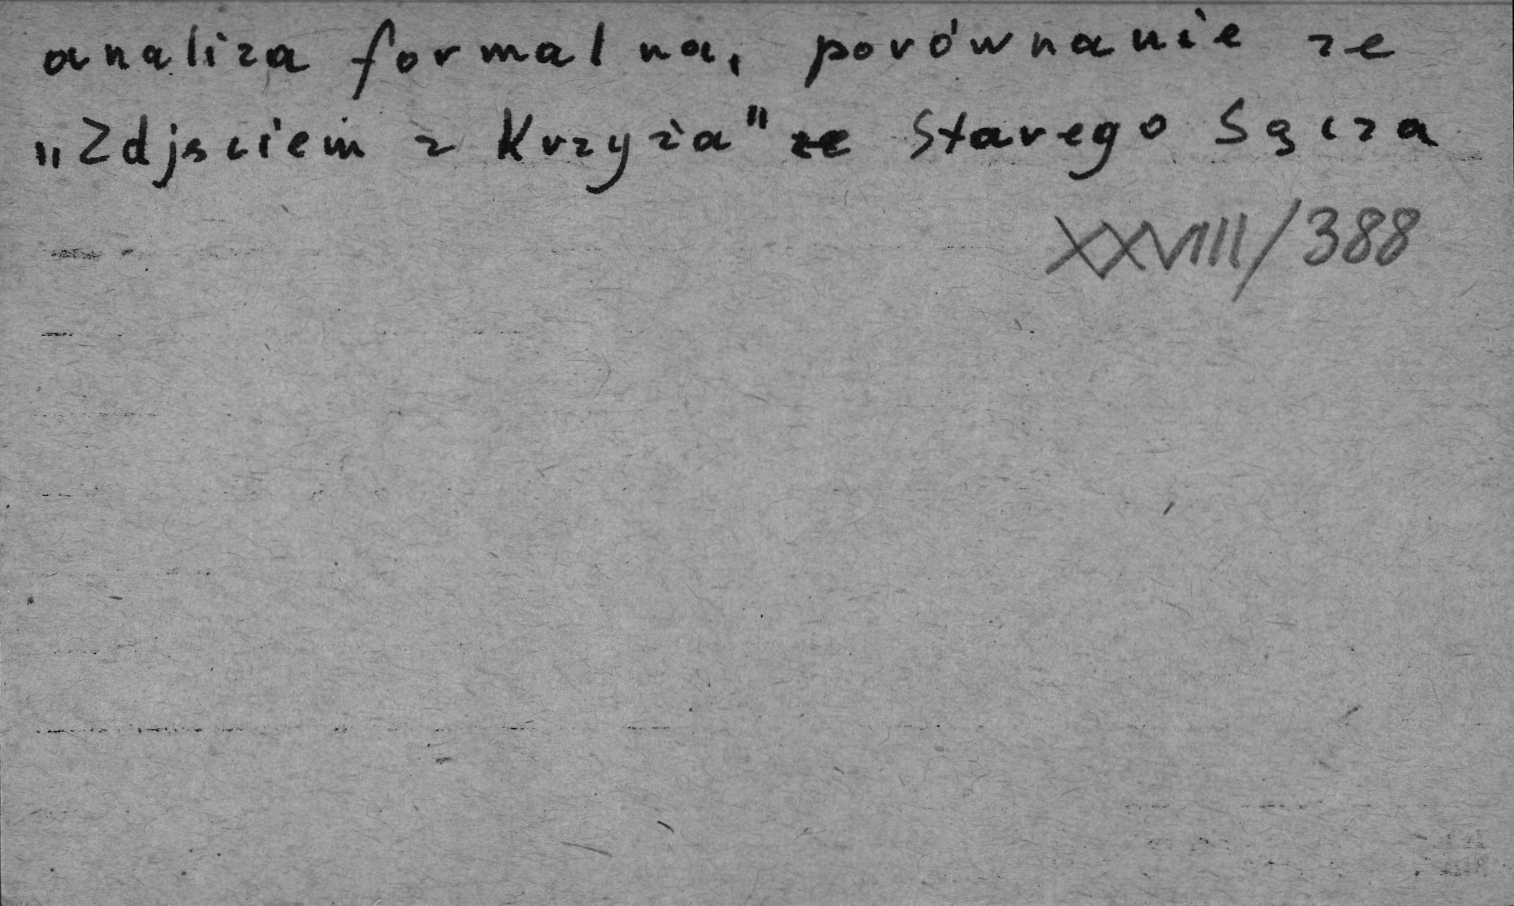 analiza formalna, porównanie ze
„Zdjęciem z Krzyża" ze Starego Sącza
XXVIII/388